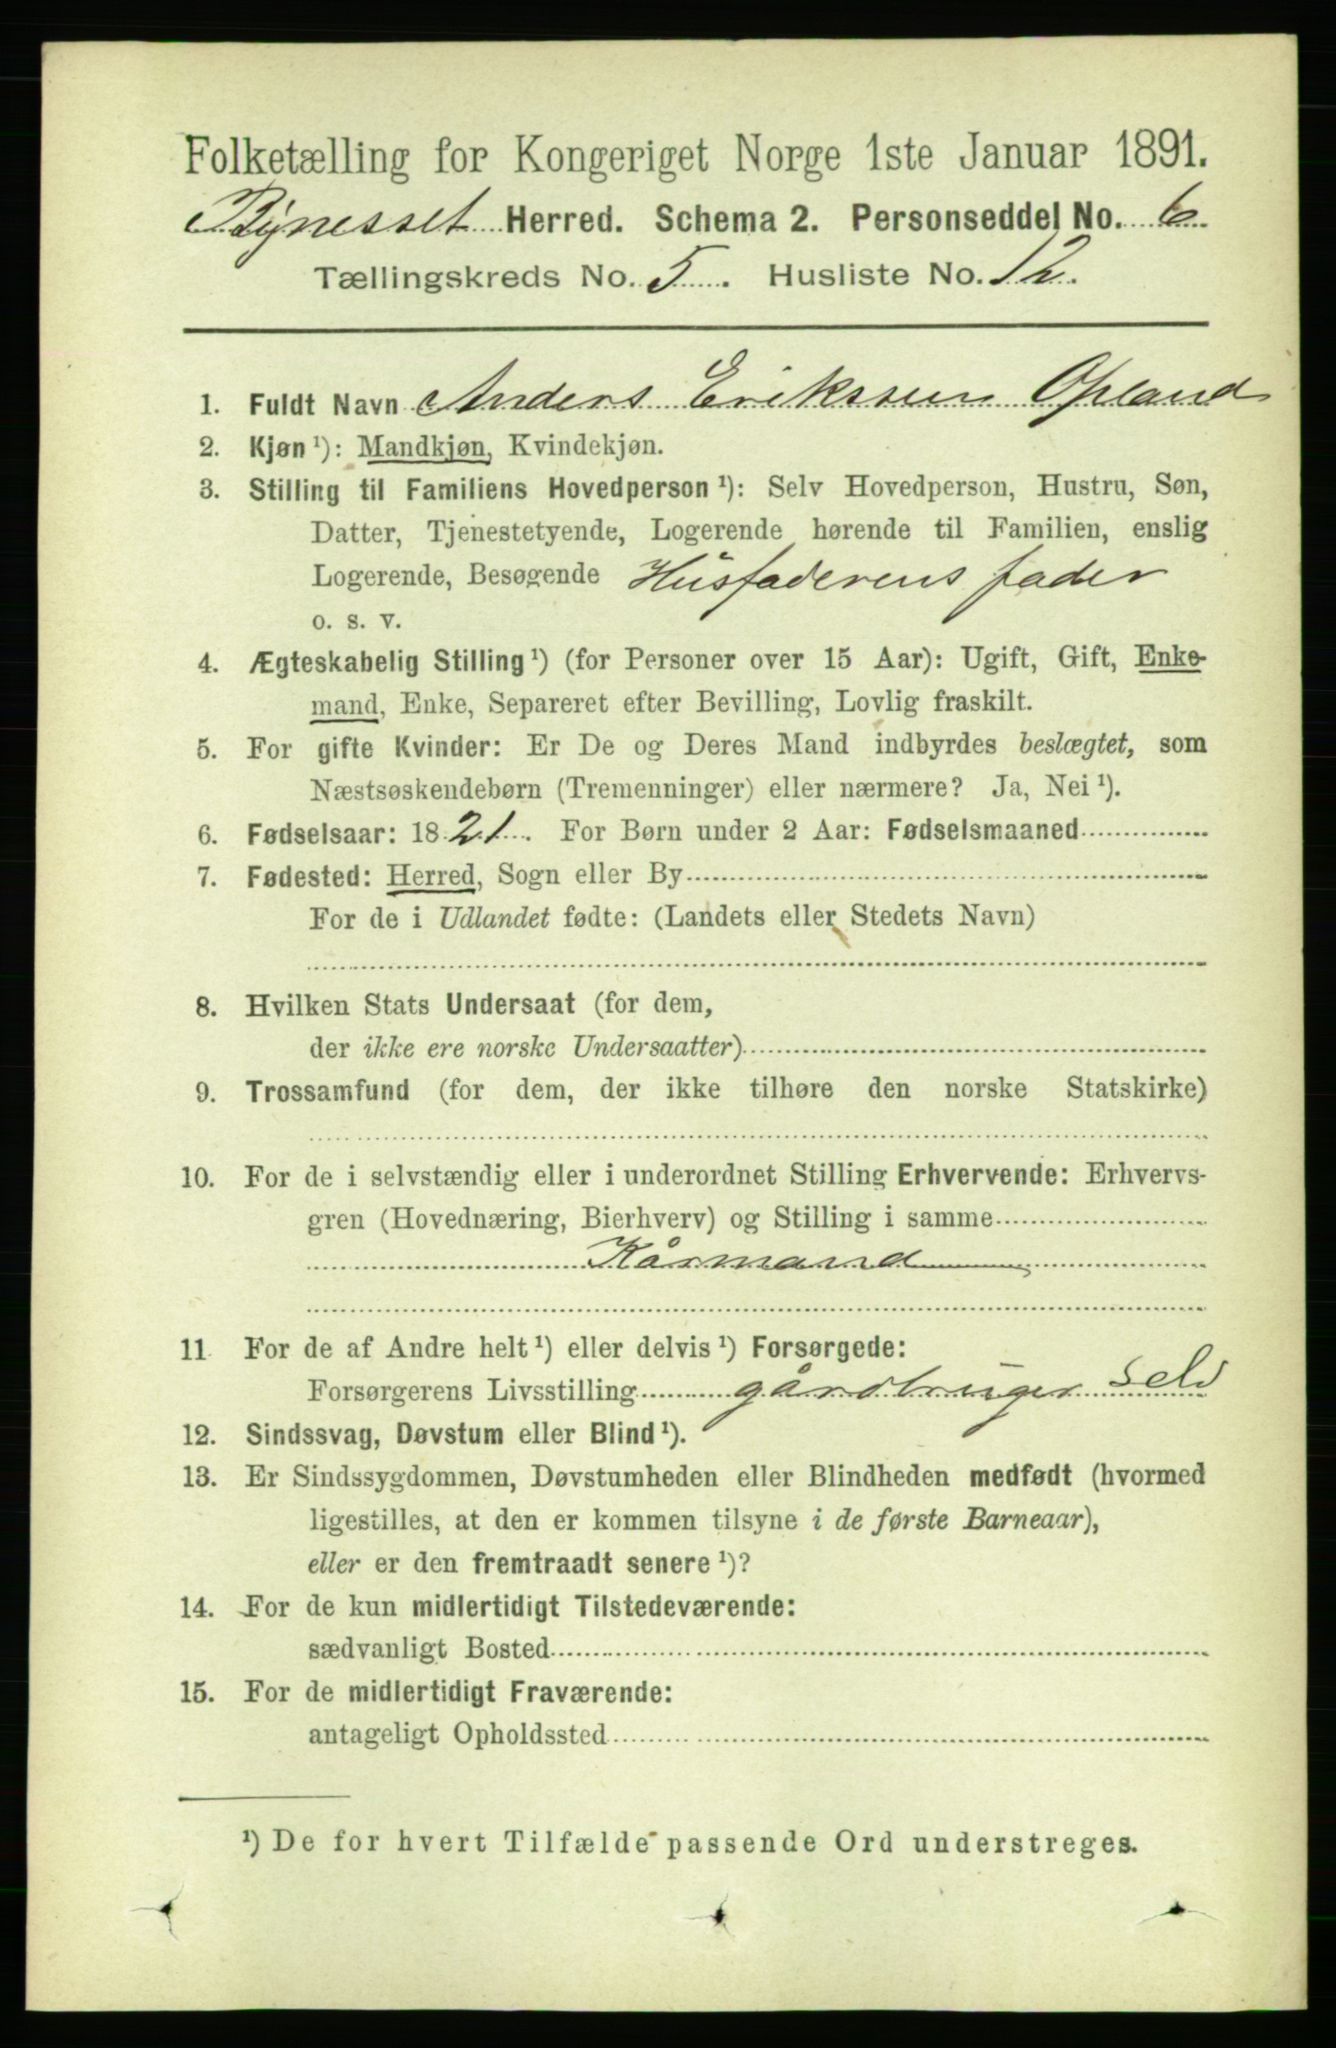 Folketælling for Kongeriget Norge 1ste Januar 1891.
Bynesset Herred. Schema 2. Personseddel No. 6.
Tællingskreds No. 5. Husliste No. 12.
1. Fuldt Navn Anders Erikssen Opland
2. Kjøn¹): Mandkjøn, Kvindekjøn.
3. Stilling til Familiens Hovedperson¹): Selv Hovedperson, Hustru, Søn,
Datter, Tjenestetyende, Logerende hørende til Familien, enslig
Logerende, Besøgende Husfaderens fader
o. s. v.
4. Ægteskabelig Stilling¹) (for Personer over 15 Aar): Ugift, Gift, Enke-
mand, Enke, Separeret efter Bevilling, Lovlig fraskilt.
5. For gifte Kvinder: Er De og Deres Mand indbyrdes beslægtet, som
Næstsøskendebørn (Tremenninger) eller nærmere? Ja, Nei¹).
6. Fødselsaar: 1821. For Børn under 2 Aar: Fødselsmaaned
7. Fødested: Herred, Sogn eller By
For de i Udlandet fødte: (Landets eller Stedets Navn)
8. Hvilken Stats Undersaat (for dem,
der ikke ere norske Undersaatter)
9. Trossamfund (for dem, der ikke tilhøre den norske Statskirke)
10. For de i selvstændig eller i underordnet Stilling Erhvervende: Erhvervs-
gren (Hovednæring, Bierhverv) og Stilling i samme
Kårmand
11 For de af Andre helt¹) eller delvis¹) Forsørgede:
Forsørgerens Livsstilling gårdbruger Selv
12. Sindssvag, Døvstum eller Blind¹).
13. Er Sindssygdommen, Døvstumheden eller Blindheden medfødt (hvormed
ligestilles, at den er kommen tilsyne i de første Barneaar),
eller er den fremtraadt senere¹)?
14. For de kun midlertidigt Tilstedeværende:
sædvanligt Bosted
15. For de midlertidigt Fraværende:
antageligt Opholdssted
¹) De for hvert Tilfælde passende Ord understreges.